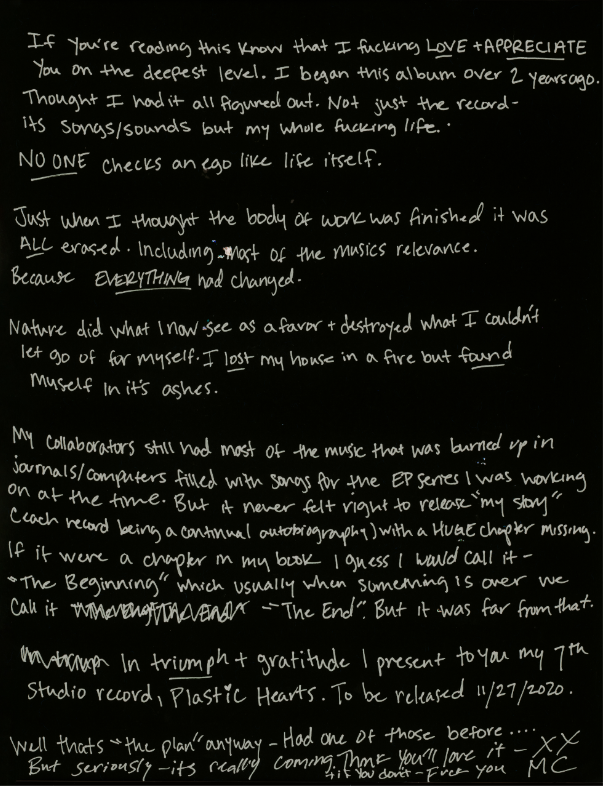 If you're reading this know that I fucking LOVE + APPRECIATE
You on the deepest level. I began this album over 2 years ago.
Thought I had it all figured out. Not just the record-
its songs/sounds but my whole fucking life.
NO ONE checks an ego like life itself.
Just when I thought the body of work was finished it was
ALL erased. Including most of the musics relevance.
Because EVERYTHING had changed.
Nature did what I now see as a favor + destroyed what I couldn't
let go of for myself. I lost my house in a fire but found
Myself In it's ashes.
My collaborators still had most of the music that was burned up in
journals/computers filled with songs for the EP series I was working
on at the time. But it never felt right to release "my story"
(each record being a continual autobiography) with a HUGE chapter missing.
If it were a chapter in my book I guess I would call it -
"The Beginning" which usually when something is over we
Call it - "The End". But it was far from that.
In triumph + gratitude I present to you my 7th
Studio record, Plastic Hearts. To be released 11/27/2020.
Well thats "the plan" anyway - Had one of those before ....
But seriously - its really coming. Think You'll love it - XX
+ if You don't - Fuck you MC